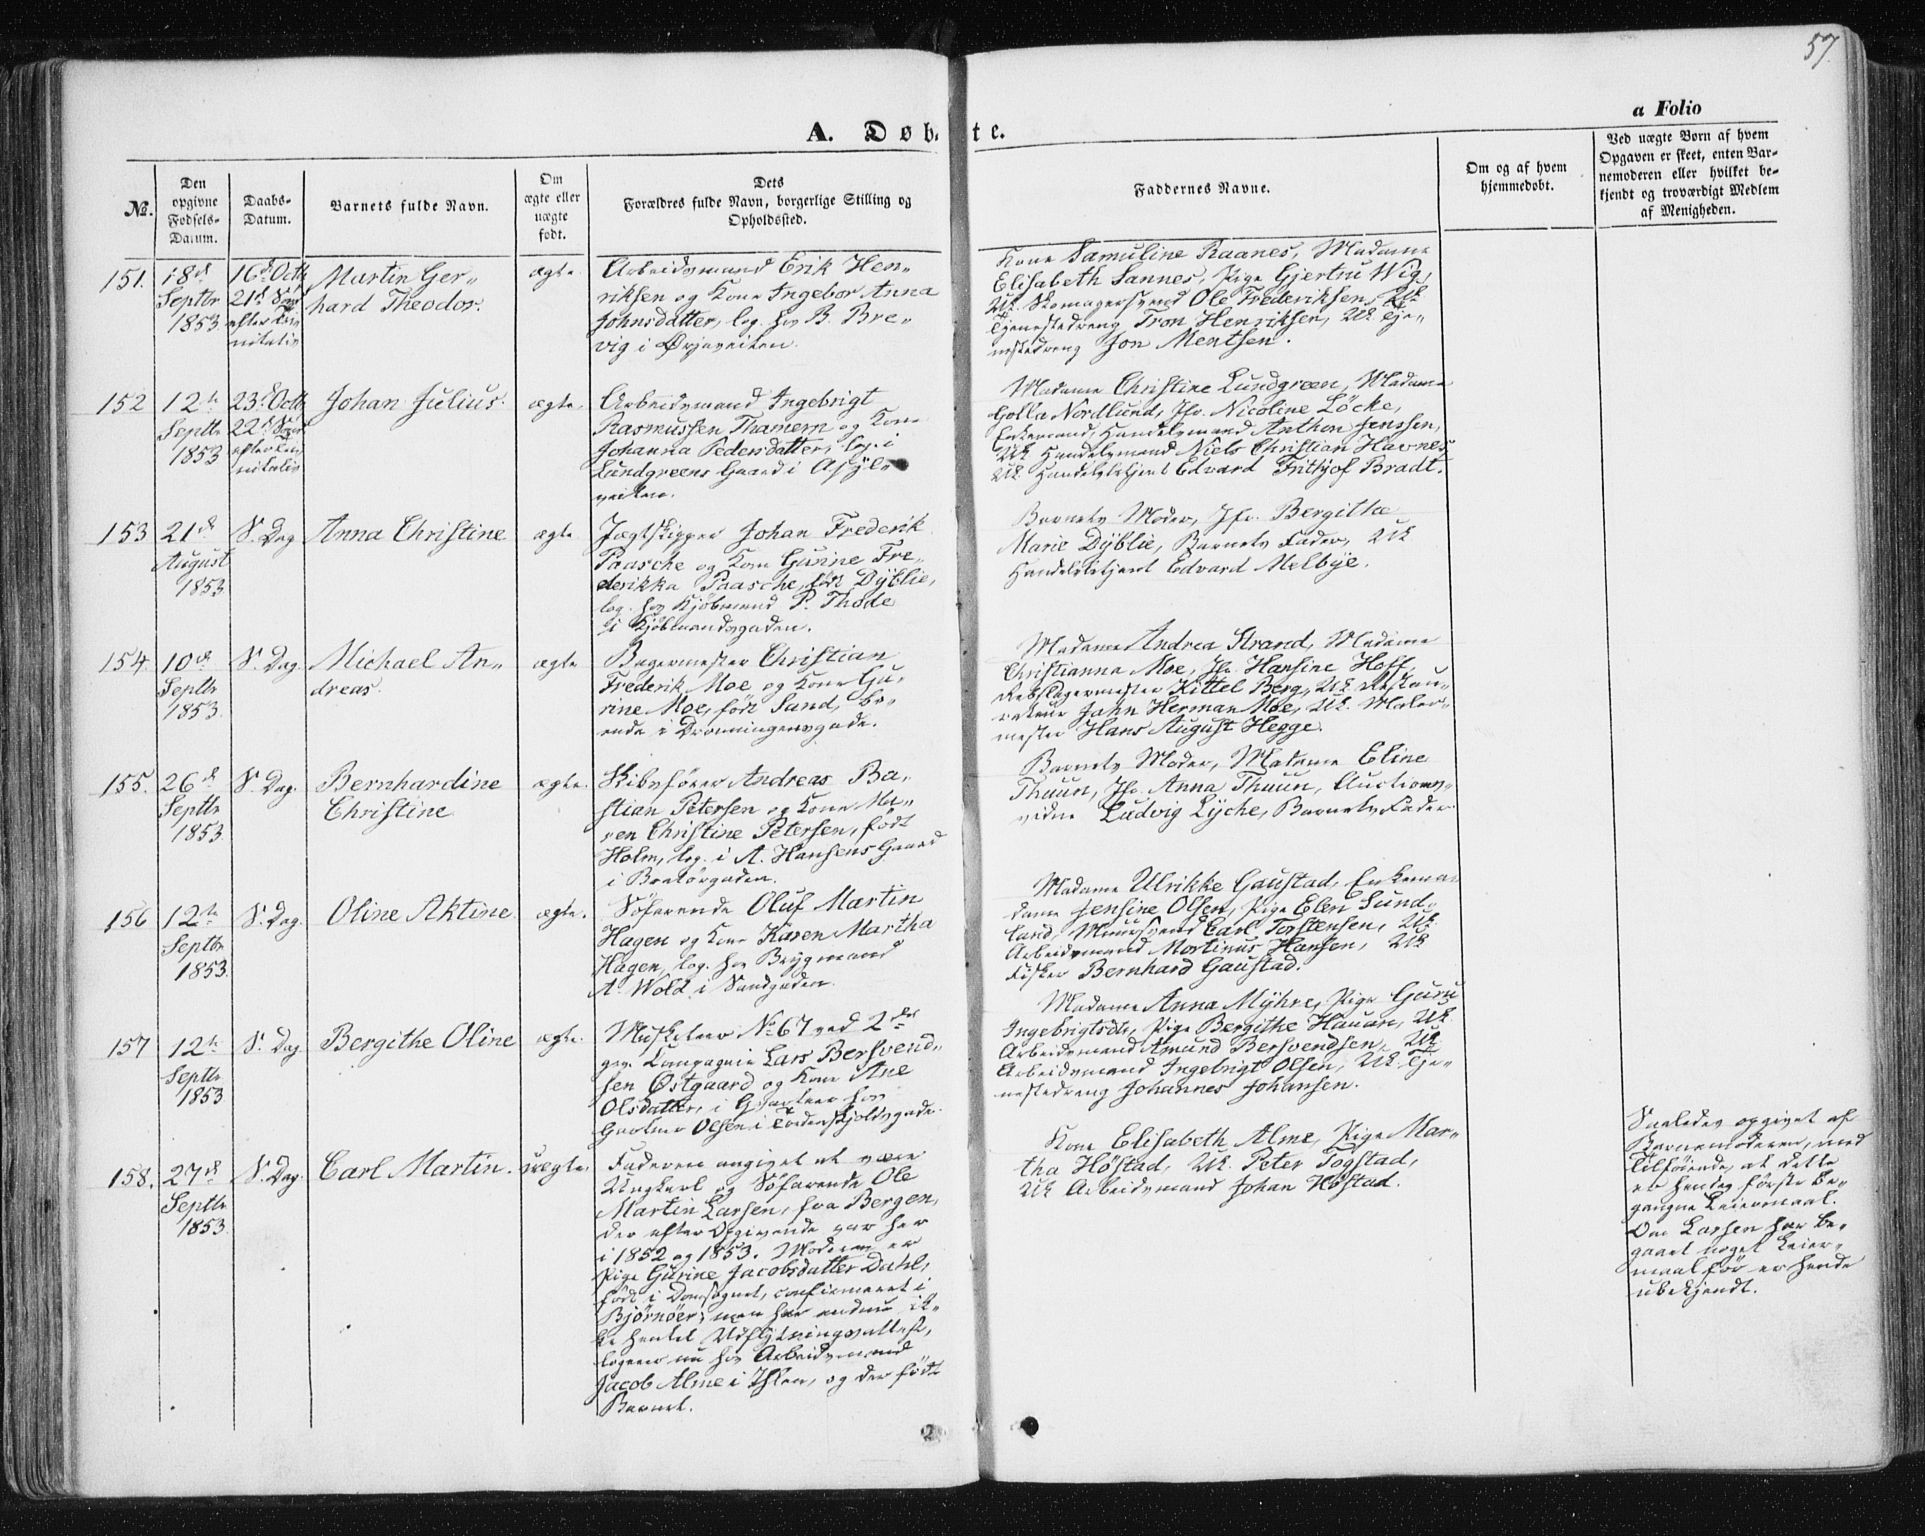 57.
a Folio
A. Døb te.
№.
Den
opgivne
Fødsels-
Datum.
Daabs-
Datum.
Barnets fulde Navn.
Om
ægte eller
uægte
født.
Dets
Forældres fulde Navn, borgerlige Stilling og
Opholdssted.
Faddernes Navne.
Om og af hvem
hjemmedøbt.
Ved uægte Børn af hvem
Opgaven er skeet, enten Bar-
nemoderen eller hvilket be-
kjendt og troværdigt Medlem
af Menigheden.
151.
18d
Septbr
1853
16d Octb
21d Søn
efter Tri-
nitatis
Martin Ger-
hard Theodor.
ægte
Arbeidsmand Erik Hen-
riksen og Kone Ingebor Anna
Johnsdatter, log. hos B. Bre-
vig i Ørjaveiten.
Kone Samuline Raanes, Madame
Elisabeth Sannes, Pige Gjertru Wig,
Uk. Skomagersvend Ole Frederiksen, Uk
Tjenestedreng Tron Henriksen, Uk Tje-
nestedreng Jon Mentsen.
152
12te
Septbr
1853
23d Octb
22d Søn
efter Tri-
nitatis
Johan Julius.
ægte.
Arbeidsmand Ingebrigt
Rasmussen Thamern og Kone
Johanna Pedersdatter, log. i
Lundgreens Gaard i Apsjel-
veiten.
Madame Christine Lundgreen, Madame
Golla Nordlund, Jfr. Nicoline Löcke,
Enkemand, Handelsmand Anthon Jenssen,
Uk Handelsmand Niels Christian Havnes,
Uk. Handelsbetjent Edvard Frithjof Bradt.
153
21d
August
1853
S. Dag
Anna Christine
ægte
Jagtskipper Johan Frederik
Paasche og Kone Gurine Fre-
derikka Paasche, født Dÿblie,
log. hos Kjøbmand P. Thode
i Kjøbmandsgaden.
Barnets Moder, Jfr. Bergithe
Marie Dÿblie, Barnets Fader, Uk
Handelsbetjent Edvard Melbÿe.
154.
10d
Septbr
1853.
S. Dag.
Michael An-
dreas.
ægte
Bagermester Christian
Frederik Moe og Kone Gu-
rine Moe, født Sand, bo-
ende i Dronningensgade.
Madame Andrea Strand, Madame
Christianna Moe, Jfr. Hansine Hoff,
Rebslagermester Kittel Berg, Uk Restau-
rateur John Herman Moe, Uk. Maler-
mester Hans August Hegge.
155.
26d
Septbr
1853
S. Dag.
Bernhardine
Christine
ægte.
Skibsfører Andreas Ba-
stian Petersen og Kone Ma-
ren Christine Petersen, født
Holm, log. i A. Hansens Gaard
i Bratørgaden.
Barnets Moder, Madame Eline
Thuun, Jfr. Anna Thuun, Auctions-
vidne Ludvig Lÿche, Barnets Fader
156
12te
Septbr
1853.
S. Dag.
Oline Aktine
ægte.
Søfarende Oluf Martin
Hagen og Kone Karen Martha
Hagen, log. hos Brygmand
A. Wold i Sandgaden.
Madame Ulrikke Gaustad, Enkema-
dame Jensine Olsen, Pige Elen Sund-
land, Muursvend Carl Torstensen, Uk
Arbeidsmand Mortinus Hansen, Uk
Fisker Bernhard Gaustad.
157
12te
Septbr
1853
S. Dag
Bergithe Oline
ægte.
Musketeer No 67 ved 2det
gev. Compagnie Lars Bersvend-
sen Östgaard og Kone Ane
Olsdatter, i Qvarteer hos
Gartner Olsen i Tordenskjoldsgade.
Madame Anna Mÿhre, Pige Guru
Ingebrigtsdt, Pige Bergithe Hauan, Uk
Arbeidsmand Amund Bersvendsen, Uk
Arbeidsmand Ingebrigt Olsen, Uk Tje-
nestedreng Johannes Johansen.
158.
27d
Septbr
1853.
S. Dag.
Carl Martin.
uægte.
Faderen angivet at være
Ungkarl og Søfarende Ole
Martin Larsen, fra Bergen,
der efter Opgivende var her
i 1852 og 1853. Moderen er
Pige Gurine Jacobsdatter Dahl,
født i Domsognet, confirmeret i
Bjørnøer; men har endnu ik-
ke hentet Udflytningsattest,
logerer nu hos Arbeidsmand
Jacob Alme i Ihlen, og der født
Barnet.
Kone Elisabeth Alme, Pige Mar-
tha Høstad, Uk. Peter Togstad,
Uk Arbeidsmand Johan Høstad.
Saaledes opgivet af
Barnemoderen, med
Tilføiende, at dette
er hendes første be-
gangne Leiermaal.
Om Larsen har be-
gaaet noget Leier-
maal før er hende
ubekjendt.